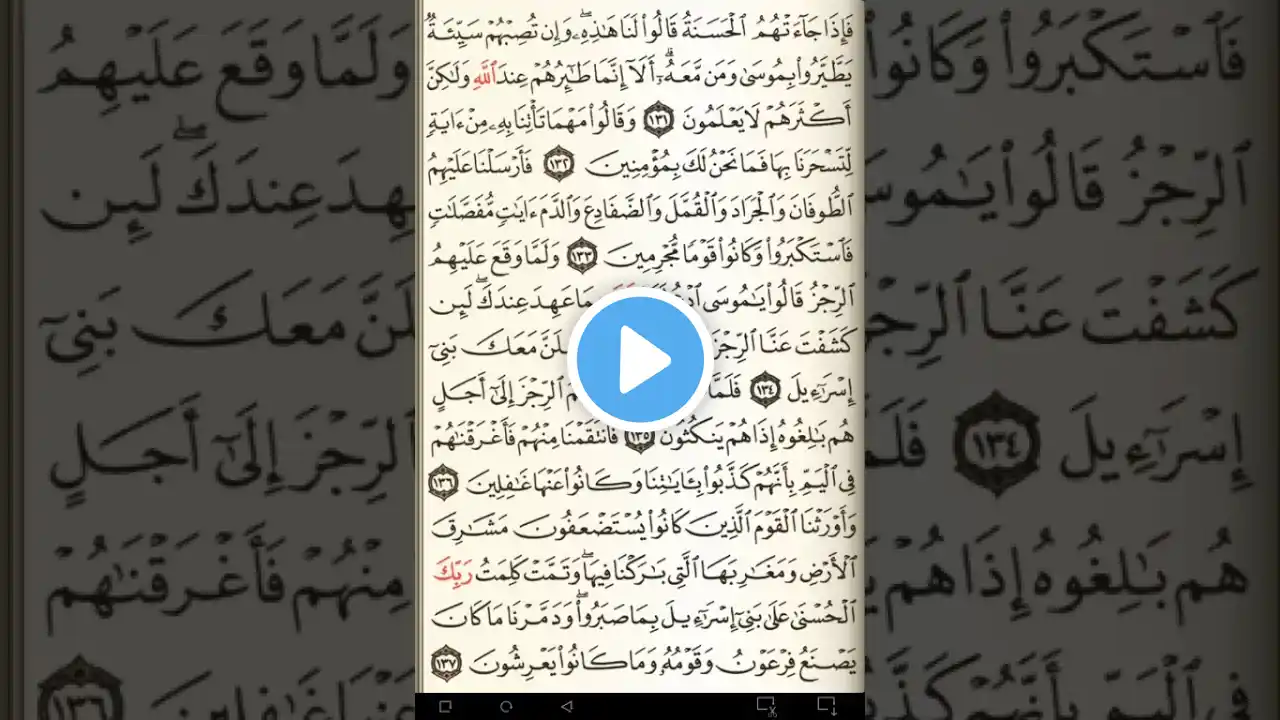 فَإِذَا جَآءَتْهُمُ ٱلْحَسَنَةُ قَالُوا۟ لَنَا هَـٰذِهِۦ ۖ وَإِن تُصِبْهُمْ سَيِّئَةٌ
يَطَّيَّرُوا۟ بِمُوسَىٰ وَمَن مَّعَهُۥٓ ۗ أَلَآ إِنَّمَا طَـٰٓئِرُهُمْ عِندَ ٱللَّهِ وَلَـٰكِنَّ
أَكْثَرَهُمْ لَا يَعْلَمُونَ ١٣١ وَقَالُوا۟ مَهْمَا تَأْتِنَا بِهِۦ مِنْ ءَايَةٍ
لِّتَسْحَرَنَا بِهَا فَمَا نَحْنُ لَكَ بِمُؤْمِنِينَ ١٣٢ فَأَرْسَلْنَا عَلَيْهِمُ
ٱلطُّوفَانَ وَٱلْجَرَادَ وَٱلْقُمَّلَ وَٱلضَّفَادِعَ وَٱلدَّمَ ءَايَـٰتٍ مُّفَصَّلَـٰتٍ
فَٱسْتَكْبَرُوا۟ وَكَانُوا۟ قَوْمًا مُّجْرِمِينَ ١٣٣ وَلَمَّا وَقَعَ عَلَيْهِمُ
ٱلرِّجْزُ قَالُوا۟ يَـٰمُوسَى ٱدْعُ بِمَا عَهِدَ عِندَكَ ۖ لَئِن
كَشَفْتَ عَنَّا ٱلرِّجْزَ مَعَكَ بَنِىٓ
إِسْرَٰٓءِيلَ ١٣٤ فَلَمَّا ٱلرِّجْزَ إِلَىٰٓ أَجَلٍ
هُم بَـٰلِغُوهُ إِذَا هُمْ يَنكُثُونَ ١٣٥ فَٱنتَقَمْنَا مِنْهُمْ فَأَغْرَقْنَـٰهُمْ
فِى ٱلْيَمِّ بِأَنَّهُمْ كَذَّبُوا۟ بِـَٔايَـٰتِنَا وَكَانُوا۟ عَنْهَا غَـٰفِلِينَ ١٣٦
وَأَوْرَثْنَا ٱلْقَوْمَ ٱلَّذِينَ كَانُوا۟ يُسْتَضْعَفُونَ مَشَـٰرِقَ
ٱلْأَرْضِ وَمَغَـٰرِبَهَا ٱلَّتِى بَـٰرَكْنَا فِيهَا ۖ وَتَمَّتْ كَلِمَتُ رَبِّكَ
ٱلْحُسْنَىٰ عَلَىٰ بَنِىٓ إِسْرَٰٓءِيلَ بِمَا صَبَرُوا۟ ۖ وَدَمَّرْنَا مَا كَانَ
يَصْنَعُ فِرْعَوْنُ وَقَوْمُهُۥ وَمَا كَانُوا۟ يَعْرِشُونَ ١٣٧